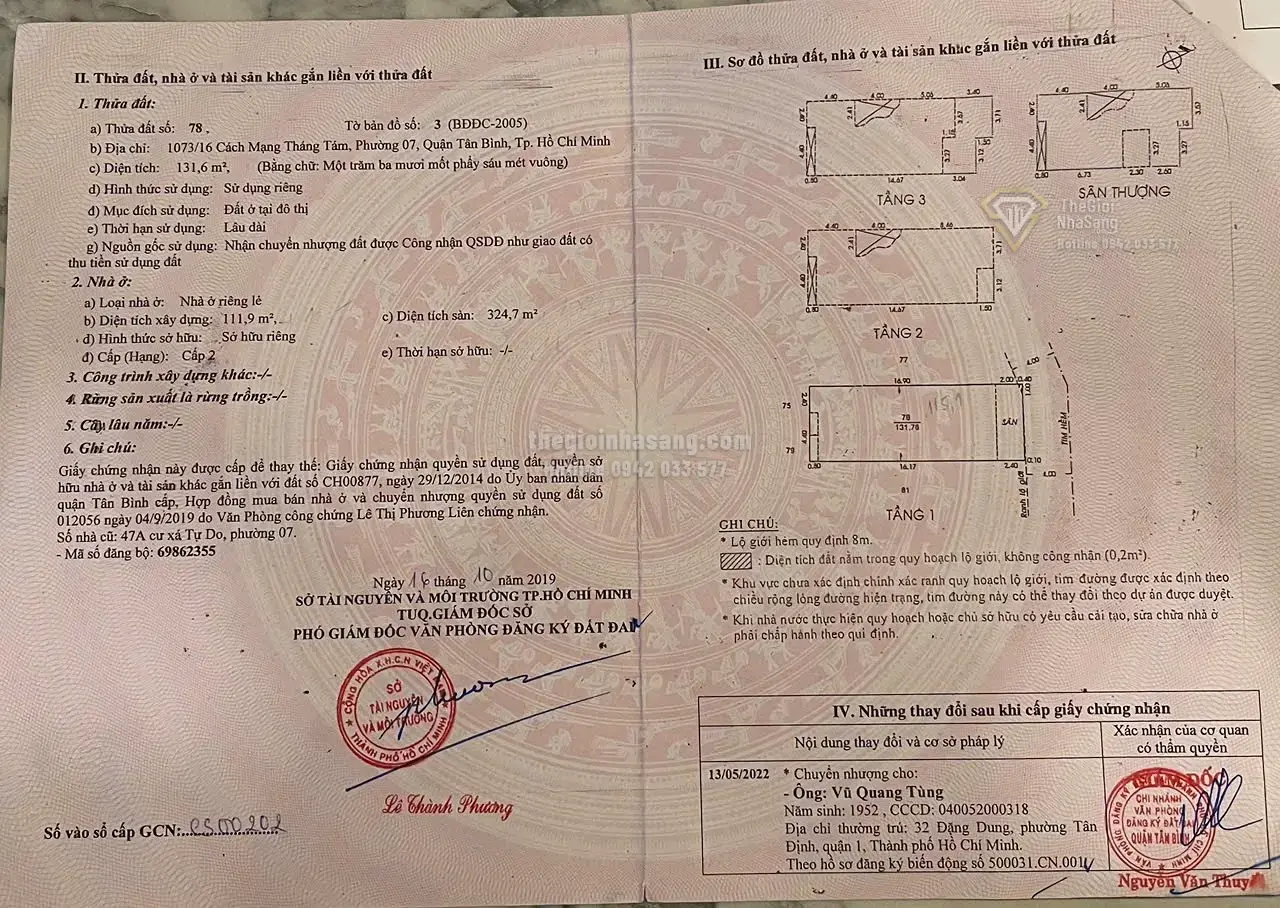 II. Thửa đất, nhà ở và tài sản khác gắn liền với thửa đất
1. Thửa đất:
a) Thửa đất số: 78, Tờ bản đồ số: 3 (BĐĐC-2005)
b) Địa chỉ: 1073/16 Cách Mạng Tháng Tám, Phường 07, Quận Tân Bình, Tp. Hồ Chí Minh
c) Diện tích: 131,6 m², (Bằng chữ: Một trăm ba mươi mốt phẩy sáu mét vuông)
d) Hình thức sử dụng: Sử dụng riêng
đ) Mục đích sử dụng: Đất ở tại đô thị
e) Thời hạn sử dụng: Lâu dài
g) Nguồn gốc sử dụng: Nhận chuyển nhượng đất được Công nhận QSDĐ như giao đất có
thu tiền sử dụng đất
2. Nhà ở:
a) Loại nhà ở: Nhà ở riêng lẻ
b) Diện tích xây dựng: 111,9 m², c) Diện tích sàn: 324,7 m²
d) Hình thức sở hữu: Sở hữu riêng
đ) Cấp (Hạng): Cấp 2 e) Thời hạn sở hữu: -/-
3. Công trình xây dựng khác:-/-
4. Rừng sản xuất là rừng trồng:-/-
5. Cây lâu năm:-/-
6. Ghi chú:
Giấy chứng nhận này được cấp để thay thế: Giấy chứng nhận quyền sử dụng đất, quyền sở
hữu nhà ở và tài sản khác gắn liền với đất số CH00877, ngày 29/12/2014 do Ủy ban nhân dân
quận Tân Bình cấp, Hợp đồng mua bán nhà ở và chuyển nhượng quyền sử dụng đất số
012056 ngày 04/9/2019 do Văn Phòng công chứng Lê Thị Phương Liên chứng nhận.
Số nhà cũ: 47A cư xá Tự Do, phường 07.
- Mã số đăng bộ: 69862355
Ngày 16 tháng 10 năm 2019
SỞ TÀI NGUYÊN VÀ MÔI TRƯỜNG TP.HỒ CHÍ MINH
TUQ.GIÁM ĐỐC SỞ
PHÓ GIÁM ĐỐC VĂN PHÒNG ĐĂNG KÝ ĐẤT ĐAI
CỘNG HÒA X.H.C.N VIỆT NAM
SỞ
TÀI NGUYÊN
VÀ MÔI TRƯỜNG
THÀNH PHỐ HỒ CHÍ MINH
Lê Thành Phương
Số vào sổ cấp GCN: CS00202
III. Sơ đồ thửa đất, nhà ở và tài sản khác gắn liền với thửa đất
4.40 4.00 5.06 3.40
2.40 2.41 3.67 3.71
4.40 3.27 1.50 3.12
0.80 14.67 3.04
TẦNG 3
4.40 4.00 5.06
2.40 2.41 3.67
1.16
4.40 3.27 3.27
0.80 6.73 2.30 2.60
SÂN THƯỢNG
TheGioi
NhaSang
Hotline 0942 033 577
4.40 4.00 8.46
2.40 2.41 3.71
4.40 3.12
0.80 14.67 1.50
TẦNG 2
77
16.90 2.00 0.40 4.00
75 2.40 1.00
78
131.76 115,1 SÂN HẺM THI
79 4.40
0.80 16.17 2.40 0.10 4.00
81 Ranh lộ giới
TẦNG 1
thegioinhasang.com
Hotline 0942 033 577
GHI CHÚ:
* Lộ giới hẻm quy định 8m.
: Diện tích đất nằm trong quy hoạch lộ giới, không công nhận (0,2m²).
* Khu vực chưa xác định chính xác ranh quy hoạch lộ giới, tim đường được xác định theo
chiều rộng lòng đường hiện trạng, tim đường này có thể thay đổi theo dự án được duyệt.
* Khi nhà nước thực hiện quy hoạch hoặc chủ sở hữu có yêu cầu cải tạo, sửa chữa nhà ở
phải chấp hành theo qui định.
IV. Những thay đổi sau khi cấp giấy chứng nhận
Nội dung thay đổi và cơ sở pháp lý
Xác nhận của cơ quan
có thẩm quyền
13/05/2022 * Chuyển nhượng cho:
- Ông: Vũ Quang Tùng
Năm sinh: 1952 , CCCD: 040052000318
Địa chỉ thường trú: 32 Đặng Dung, phường Tân
Định, quận 1, Thành phố Hồ Chí Minh.
Theo hồ sơ đăng ký biến động số 500031.CN.001
CHI NHÁNH
VĂN PHÒNG
ĐĂNG KÝ ĐẤT ĐAI
QUẬN TÂN BÌNH
Nguyễn Văn Thuy